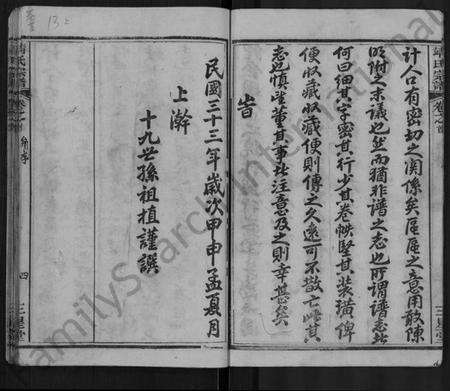 計人口有密切之關係矣區區之意用敢陳
明附之末議也然而猶非譜之志也所謂譜志者
何曰細其字密其行少其卷帙堅其裝璜俾
便收藏收藏便則傳之久遠可不散亡此其
志也慎望董其事者注意及之則幸甚矣
旹
民國三十三年歲次甲申孟夏月
上澣
十九世孫祖植謹譔
四
三星堂
氏宗譜
卷之首
13
FamilySearch International